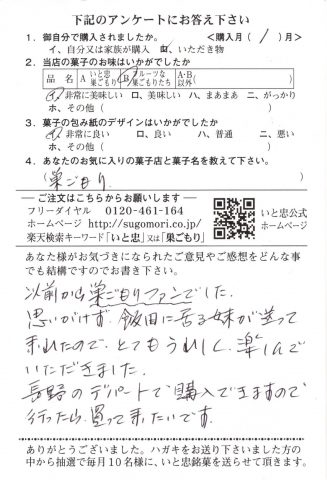 下記のアンケートにお答え下さい
1. 御自分で購入されましたか。 <購入月( 1 )月>
イ、自分又は家族が購入 ロ、いただき物
2. 当店の菓子のお味はいかがでしたか
品名 A いと忠巣ごもり B フルーツな巣ごもりたち A・B以外( )
イ、非常に美味しい ロ、美味しい ハ、まあまあ ニ、がっかり
ホ、その他( )
3. 菓子の包み紙のデザインはいかがでしたか
イ、非常に良い ロ、良い ハ、普通 ニ、悪い
ホ、その他( )
4. あなたのお気に入りの菓子店と菓子名を教えて下さい。
( 巣ごもり )
―ご注文はこちらからお願いします―
フリーダイヤル 0120-461-164
ホームページ http://sugomori.co.jp/
楽天検索キーワード「いと忠」又は「巣ごもり」
いと忠公式
ホームページ
あなた様がお気づきになられたご意見やご感想をどんな事
でも結構ですのでお書き下さい。
以前から巣ごもりファンでした。
思いがけず、飯田に居る妹が送って
来れたので、とてもうれしく、楽しんで
いただきました。
長野のデパートで購入できますので
行ったら、買って来たいです。
ありがとうございました。ハガキをお送り下さいました方の
中から抽選で毎月10名様に、いと忠銘菓を送らせて頂きます。